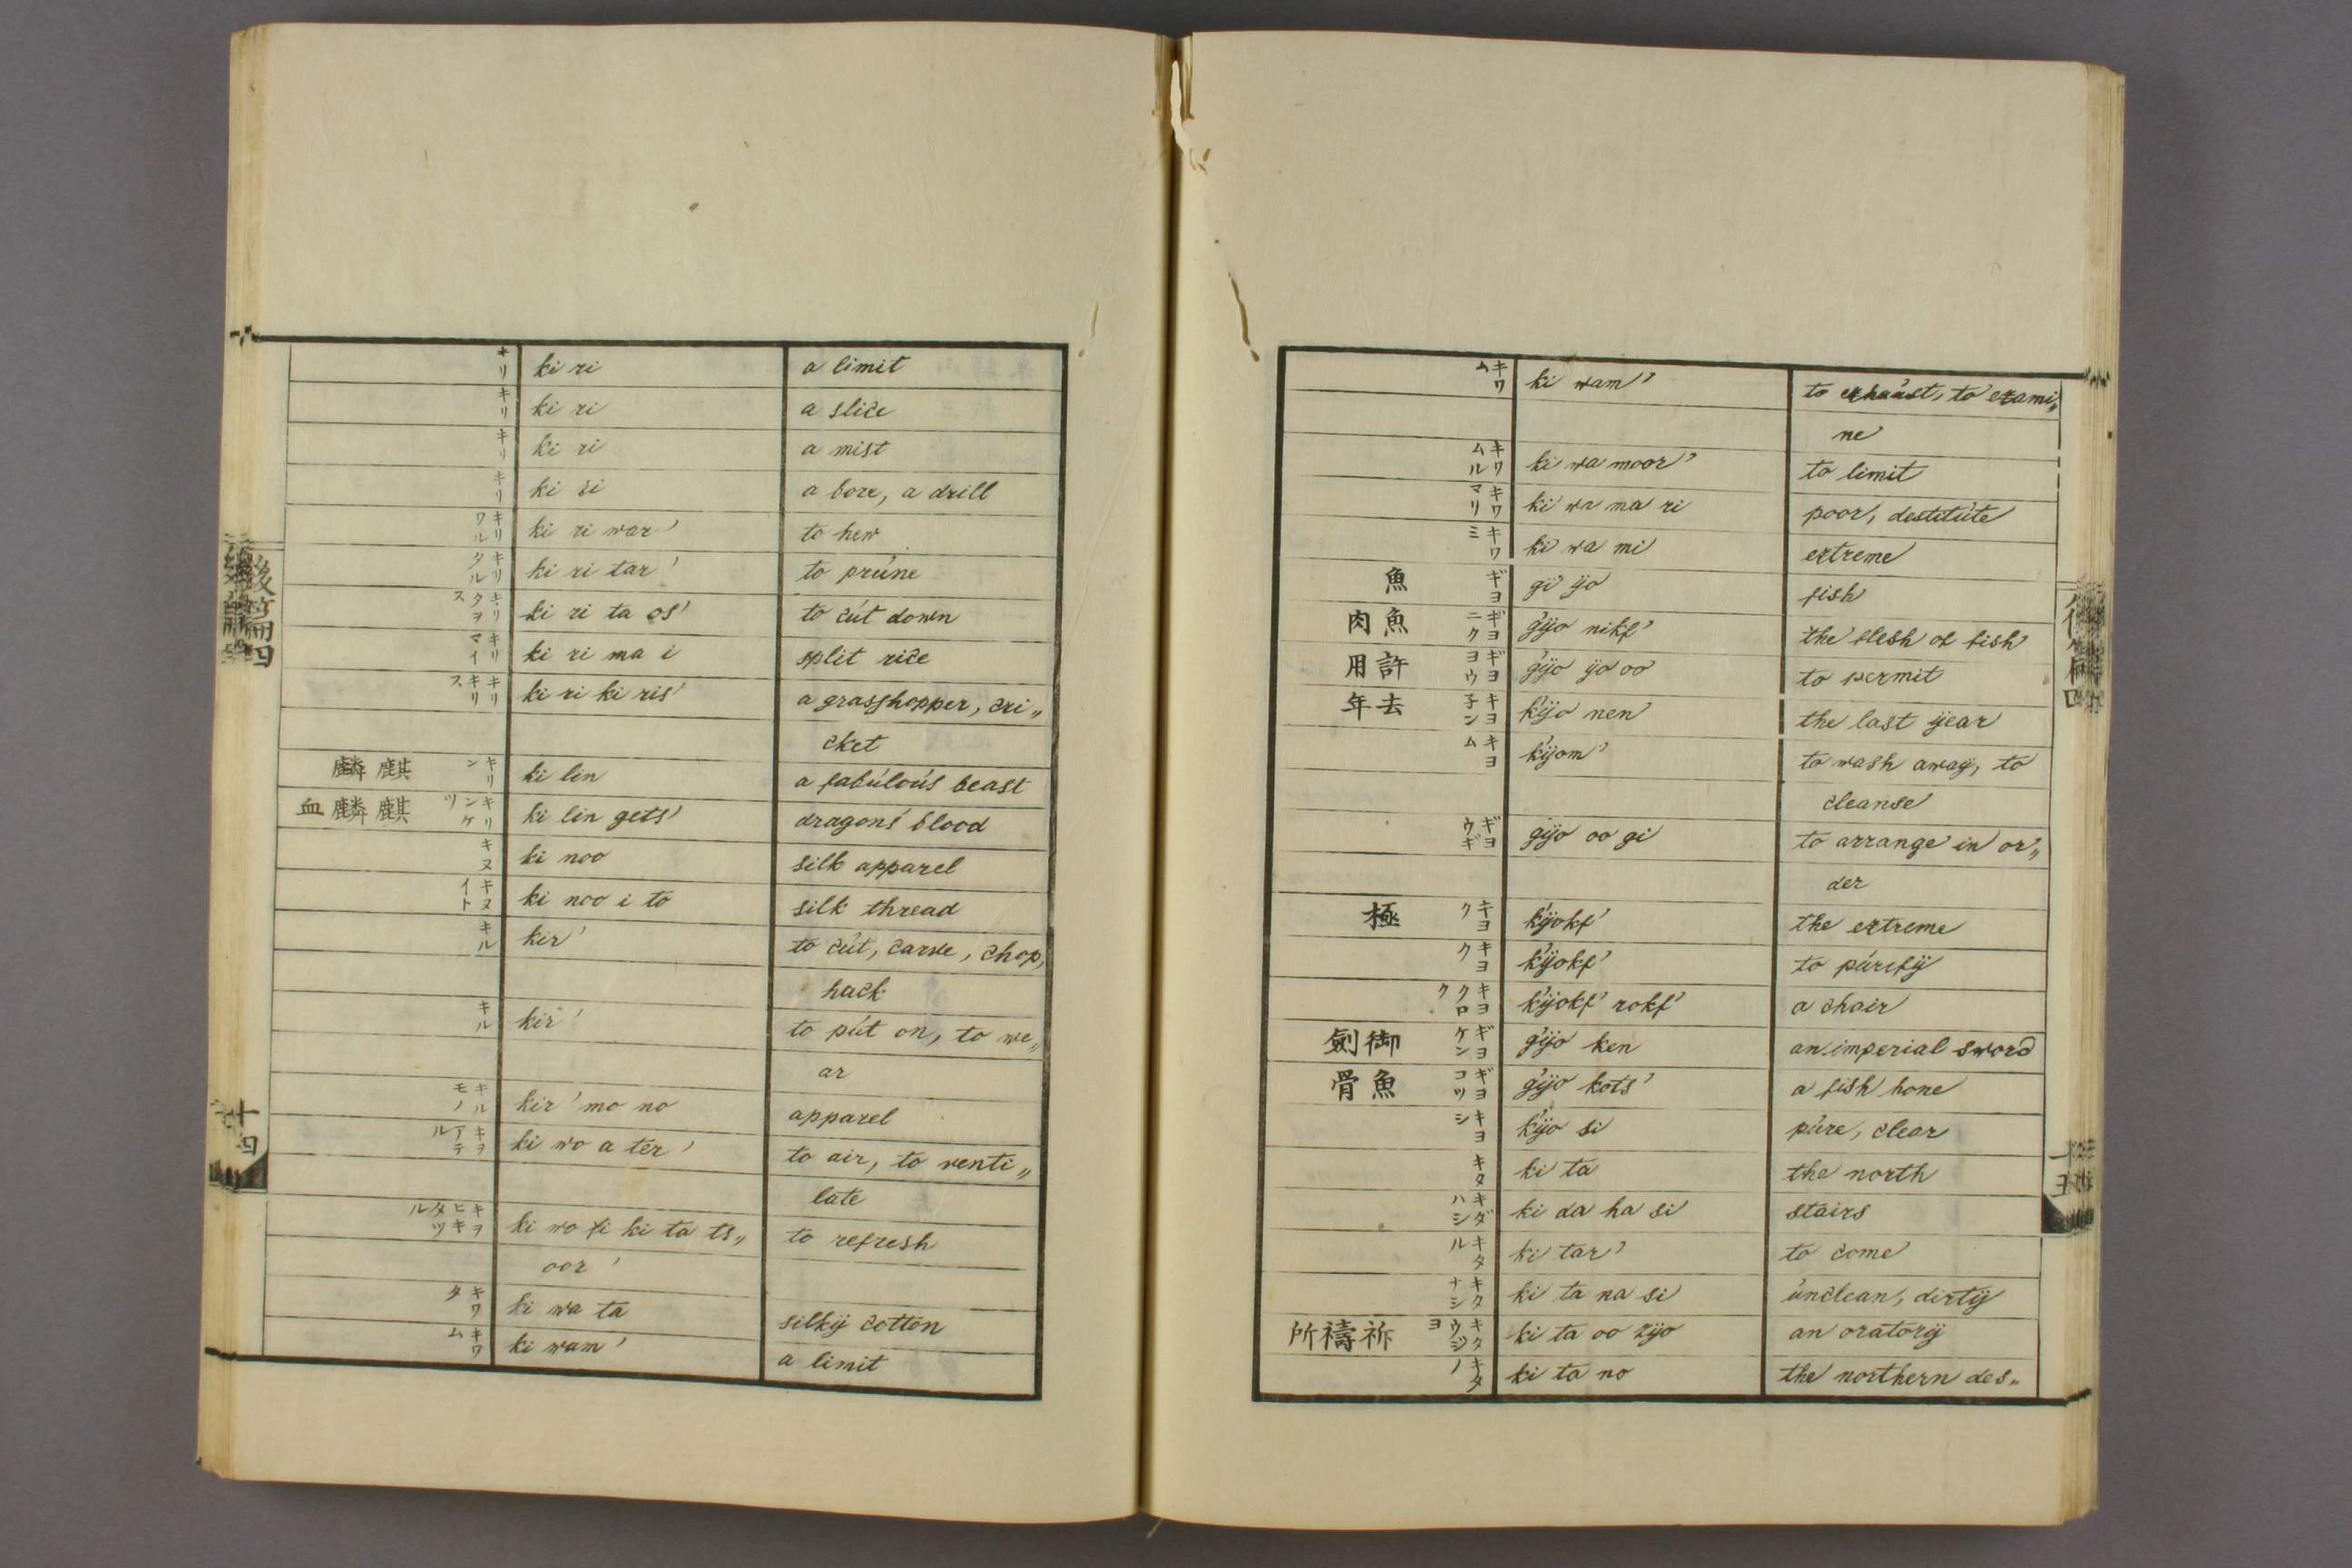 キリ ki ri a limit
キリ ki ri a slice
キリ ki ri a mist
キリ ki ri a bore, a drill
キリワル ki ri war' to hew
キリタル ki ri tar' to prúne
キリタヲス ki ri ta os' to cút down
キリマイ ki ri ma i split rice
キリキリス ki ri ki ris' a grasshopper, cri„
cket
麒麟 キリン ki lin a fabúloús beast
麒麟血 キリンケツ ki lin gets' dragons' blood
キヌ ki noo silk apparel
キヌイト ki noo i to silk thread
キル kir' to cút, carve, chop,
hack
キル kir' to pút on, to we„
ar
キルモノ kir' mo no apparel
キヲアテル ki wo a ter' to air, to venti„
late
キヲヒキタツル ki wo fi ki ta ts„ to refresh
oor'
キワタ ki wa ta silkÿ cotton
キワム ki wam' a limit
後篇四
十四
キワム ki wam' to exhaúst, to exami„
ne
キワムル ki wa moor' to limit
キワマリ ki wa ma ri poor, destitúte
キワミ ki wa mi extreme
魚 ギヨ gi ÿo fish
魚肉 ギヨニク gÿo nikf' the flesh of fish
許用 ギヨヨウ gÿo ÿo oo to permit
去年 キヨ子ン kÿo nen the last ÿear
キヨム kÿom' to wash awaÿ, to
cleanse
ギヨウギ gÿo oo gi to arrange in or„
der
極 キヨク kÿokf' the extreme
キヨク kÿokf' to púrifÿ
キヨクロク kÿokf' rokf' a chair
御劍 ギヨケン gÿo ken an imperial sword
魚骨 ギヨコツ gÿo kots' a fish hone
キヨシ kÿo si púre, clear
キタ ki ta the north
キダハシ ki da ha si stairs
キタル ki tar' to come
キタナシ ki ta na si únclean, dirtÿ
祈禱所 キタウジヨ ki ta oo zÿo an oratorÿ
キタノ ki ta no the northern des„